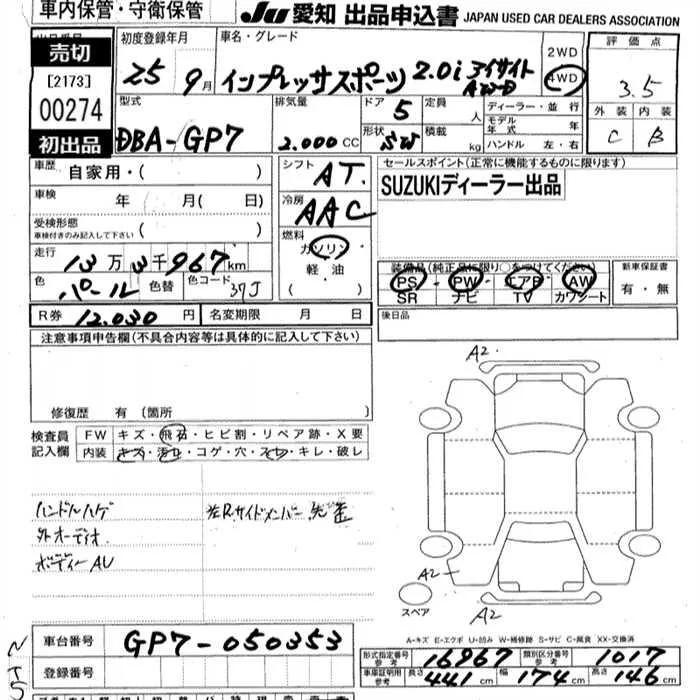 車内保管・守衛保管
JU 愛知 出品申込書 JAPAN USED CAR DEALERS ASSOCIATION
売切
[2173]
00274
初出品
初度登録年月
25 9月
車名・グレード
インプレッサスポーツ 2.0i アイサイト
AWD
2WD
4WD
評価点
3.5
外装 内装
C B
型式
DBA-GP7
排気量
2.000 CC
ドア 5
形状 SW
定員 人
積載 kg
ディーラー・並行
モデル年式 年
ハンドル 左・右
車歴 自家用・( )
車検 年 月( 日)
受検形態
車検付きのみ記入して下さい ( )
走行
13万3千967km
色 パール 色替 色コード 37J
シフト AT
冷房 AAC
燃料
ガソリン
軽油
( ・ )
セールスポイント(正常に機能するものに限ります)
SUZUKIディーラー出品
装備品(純正品に限り○をつけてください)
PS PW エアB AW
SR ナビ TV カワシート
新車保証書
有・無
後日品
R券 12.030円 名変期限 月 日
注意事項申告欄(不具合内容等は具体的に記入して下さい)
修復歴 有(箇所 )
検査員
記入欄
FW キズ・飛石・ヒビ割・リペア跡・X要
内装 キズ・汚れ・コゲ・穴・スレ・キレ・破レ
ハンドルハゲ 左R.サイドメンバー 先歪
外オーディオ
ボディーAU
A2
A2
A2
スペア
A-キズ E-エクボ U-凹み W-補修跡 S-サビ C-腐食 XX-交換済
車台番号 GP7-050353
登録番号
形式指定番号
参考 16967
類別区分番号
参考 1017
車庫証明用
参考 長さ 441cm 幅 174cm 高さ 146cm